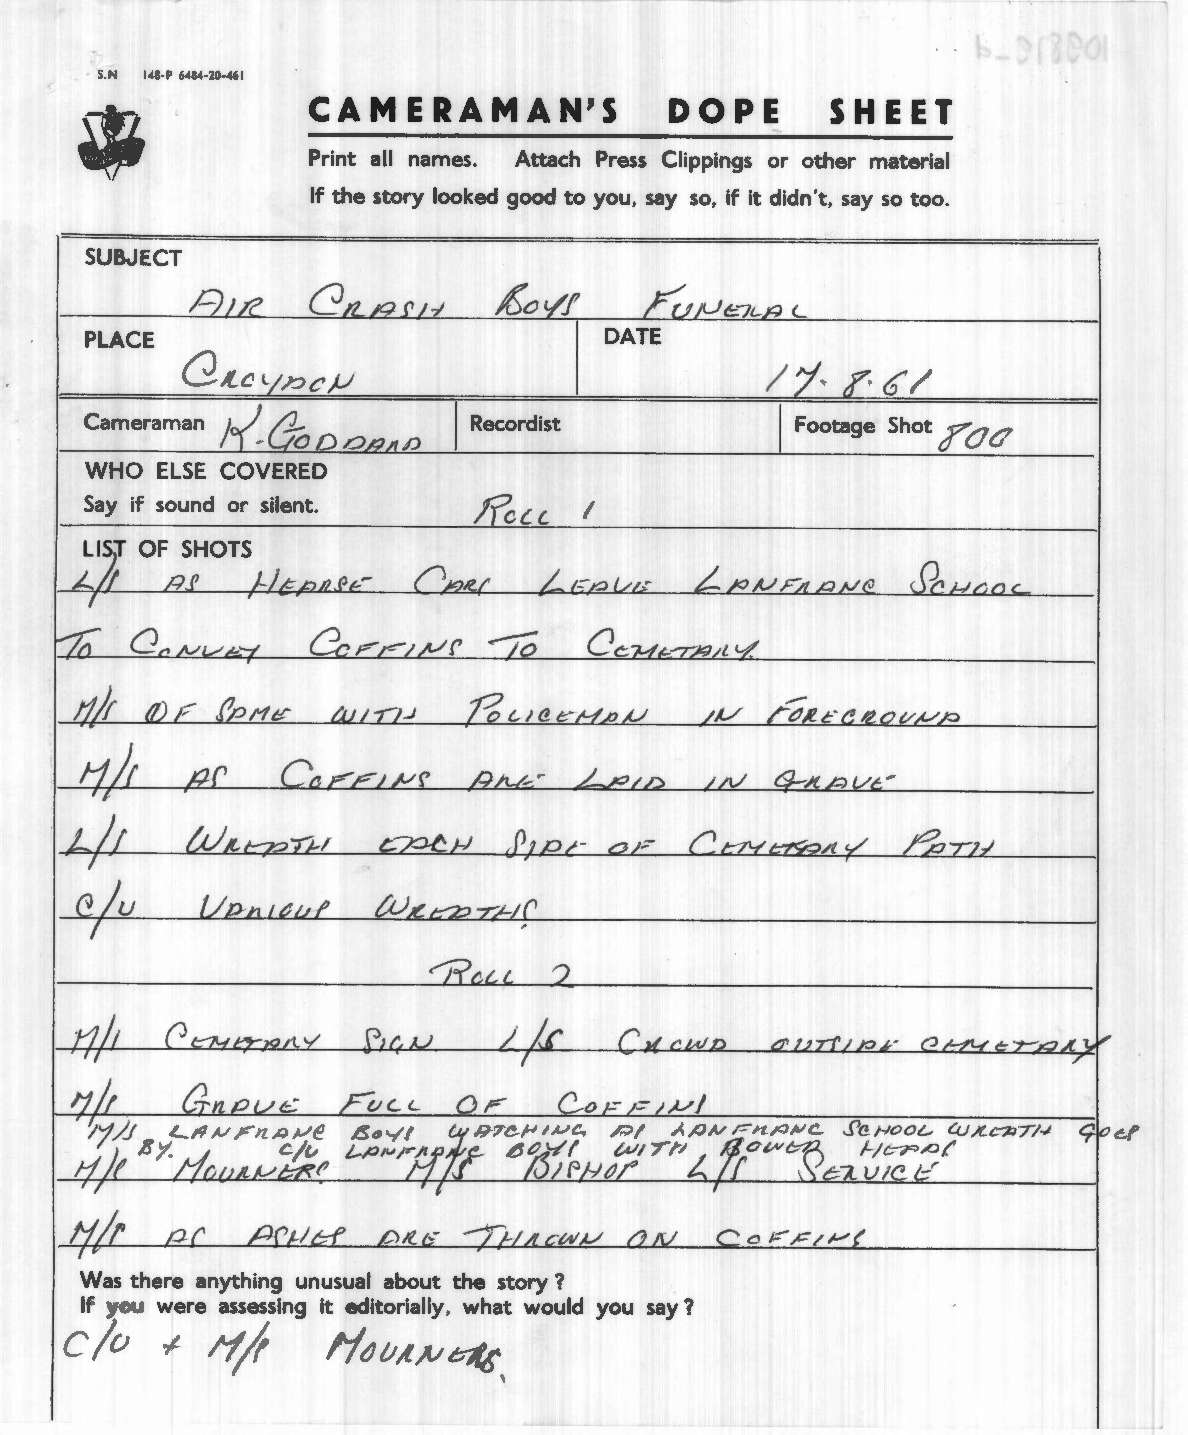 109818-d
S.N 148-P 6484-20-461
CAMERAMAN'S DOPE SHEET
Print all names. Attach Press Clippings or other material
If the story looked good to you, say so, if it didn't, say so too.
SUBJECT
AIR CRASH BOYS FUNERAL
PLACE
DATE
CROYDON
17.8.61
Cameraman K. GODDARD Recordist Footage Shot 800
WHO ELSE COVERED
Say if sound or silent.
ROLL 1
LIST OF SHOTS
L/S AS HEARSE CARS LEAVE LANFRANC SCHOOL
TO CONVEY COFFINS TO CEMETARY.
M/S OF SAME WITH POLICEMAN IN FOREGROUND
M/S AS COFFINS ARE LAID IN GRAVE
L/S WREATH EACH SIDE OF CEMETARY PATH
C/U VARIOUS WREATHS.
ROLL 2
M/S CEMETARY SIGN L/S CROWD OUTSIDE CEMETARY
M/S GRAVE FULL OF COFFINS
M/S LANFRANC BOYS WATCHING AS LANFRANC SCHOOL WREATH GOES
BY. C/U LANFRANC BOYS WITH BOWED HEADS
M/S MOURNERS M/S BISHOP L/S SERVICE
M/S AS ASHES ARE THROWN ON COFFINS
Was there anything unusual about the story?
If you were assessing it editorially, what would you say?
C/U + M/S MOURNERS.